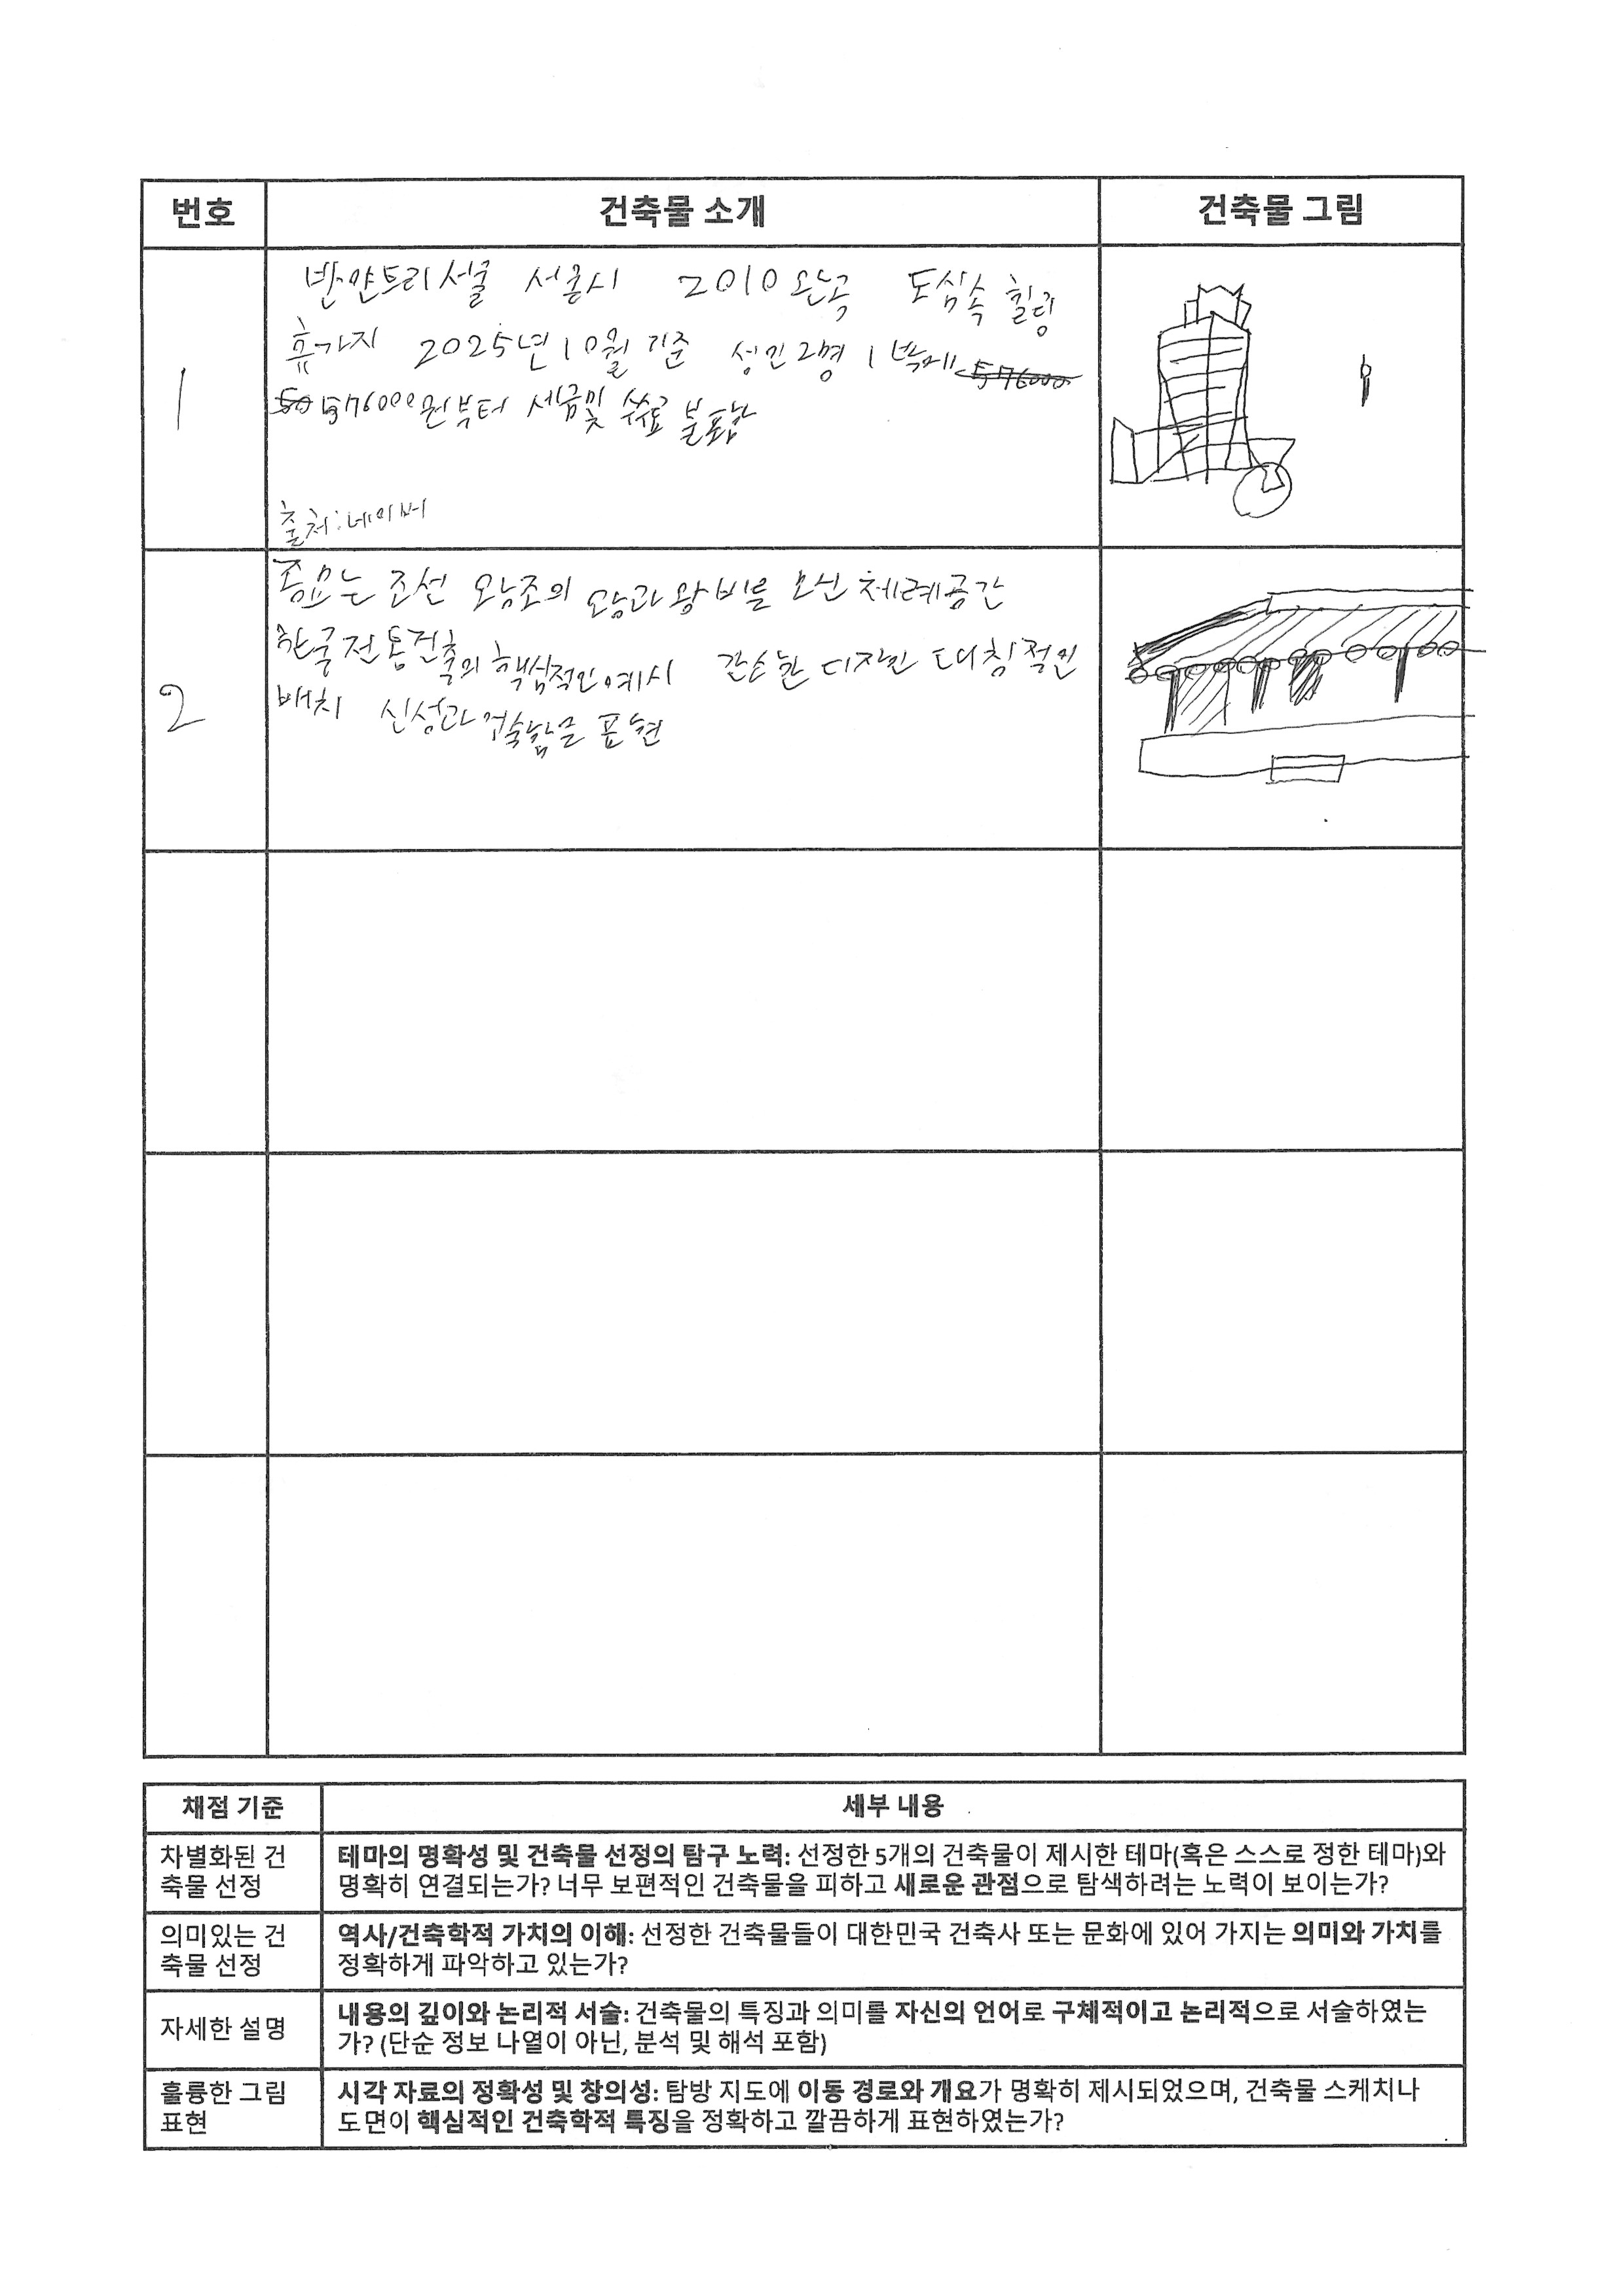 번호 건축물 소개 건축물 그림
1
반얀트리 서울 서울시 2010 완공 도심속 힐링
휴가지 2025년 10월 기준 성인 2명 1박에 576000
50 576000원부터 세금및 수수료 불포함
출처:네이버
2
종묘는 조선 왕조의 왕과 왕비를 모신 제례공간
한국전통건축의 핵심적인 예시 간소한 디자인 대칭적인
배치 신성과 엄숙함을 표현
채점 기준 세부 내용
차별화된 건
축물 선정
테마의 명확성 및 건축물 선정의 탐구 노력: 선정한 5개의 건축물이 제시한 테마(혹은 스스로 정한 테마)와
명확히 연결되는가? 너무 보편적인 건축물을 피하고 새로운 관점으로 탐색하려는 노력이 보이는가?
의미있는 건
축물 선정
역사/건축학적 가치의 이해: 선정한 건축물들이 대한민국 건축사 또는 문화에 있어 가지는 의미와 가치를
정확하게 파악하고 있는가?
자세한 설명
내용의 깊이와 논리적 서술: 건축물의 특징과 의미를 자신의 언어로 구체적이고 논리적으로 서술하였는
가? (단순 정보 나열이 아닌, 분석 및 해석 포함)
훌륭한 그림
표현
시각 자료의 정확성 및 창의성: 탐방 지도에 이동 경로와 개요가 명확히 제시되었으며, 건축물 스케치나
도면이 핵심적인 건축학적 특징을 정확하고 깔끔하게 표현하였는가?